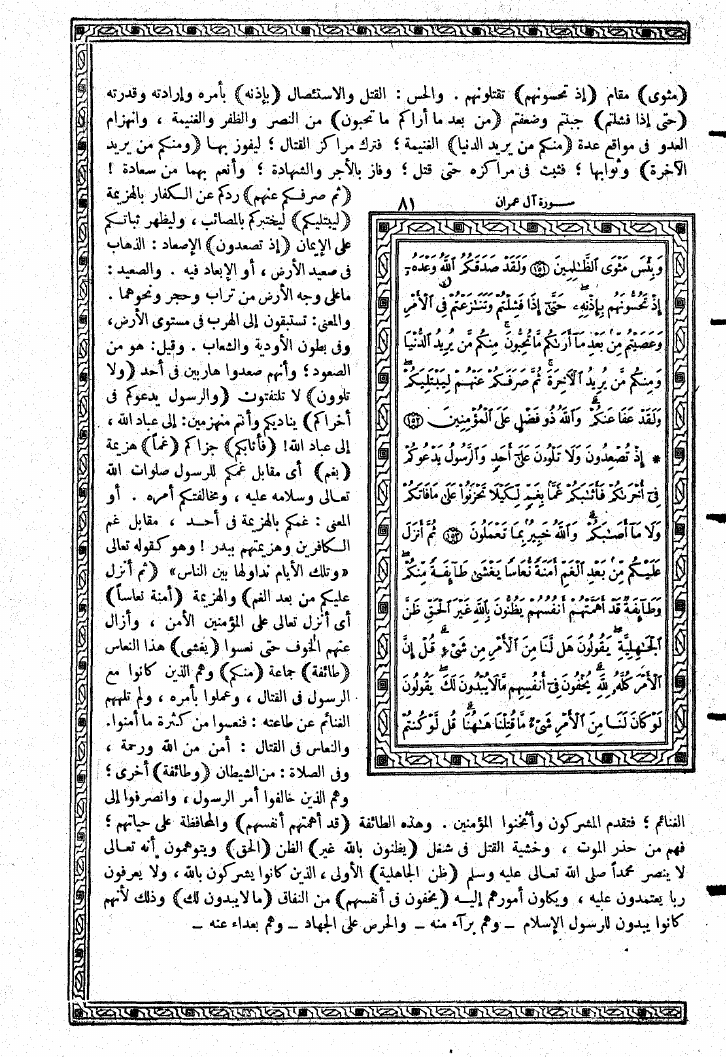 (مثوى) مقام (إذ تحسونهم) تقتلونهم . والحس : القتل والاستئصال (بإذنه) بأمره وإرادته وقدرته
(حتى إذا فشلتم) جبنتم وضعفتم (من بعد ما أراكم ما تحبون) من النصر والظفر والغنيمة ، وانهزام
العدو فى مواقع عدة (منكم من يريد الدنيا) الغنيمة ؛ فترك مراكز القتال ؛ ليفوز بها (ومنكم من يريد
الآخرة) وثوابها ؛ فثبت فى مراكزه حتى قتل ؛ وفاز بالأجر والشهادة ؛ وأنعم بهما من سعادة !
(ثم صرفكم عنهم) ردكم عن الكفار بالهزيمة
(ليبتليكم) ليختبركم بالمصائب ، وليظهر ثباتكم
على الإيمان (إذ تصعدون) الإصعاد : الذهاب
فى صعيد الأرض ، أو الإبعاد فيه . والصعيد :
ماعلى وجه الأرض من تراب وحجر ونحوهما .
والمعنى : تستبقون إلى الهرب فى مستوى الأرض ،
وفى بطون الأودية والشعاب . وقيل : هو من
الصعود ؛ وأنهم صعدوا هاربين فى أحد (ولا
تلوون) لا تلتفتون (والرسول يدعوكم فى
أخراكم) يناديكم وأنتم منهزمين : إلى عباد الله ،
إلى عباد الله! (فأثابكم) جزاكم (غماً) هزيمة
(بغم) أى مقابل غمكم للرسول صلوات الله
تعالى وسلامه عليه ، ومخالفتكم أمره . أو
المعنى : غمكم بالهزيمة فى أحد ، مقابل غم
الكافرين وهزيمتهم ببدر ! وهو كقوله تعالى
«وتلك الأيام نداولها بين الناس» (ثم أنزل
عليكم من بعد الغم) والهزيمة (أمنة نعاساً)
أى أنزل تعالى على المؤمنين الأمن ، وأزال
عنهم الخوف حتى نعسوا (يغشى) هذا النعاس
(طائفة) جماعة (منكم) وهم الذين كانوا مع
الرسول فى القتال ، وعملوا بأمره ، ولم تلههم
الغنائم عن طاعته : فنعسوا من كثرة ما أمنوا.
والنعاس فى القتال : أمن من الله ورحمة ،
وفى الصلاة : من الشيطان (وطائفة) أخرى ؛
وهم الذين خالفوا أمر الرسول ، وانصرفوا إلى
سورة آل عمران ٨١
وَبِئْسَ مَثْوَى ٱلظَّٰلِمِينَ ﴿١٥١﴾ وَلَقَدْ صَدَقَكُمُ ٱللَّهُ وَعْدَهُۥٓ
إِذْ تَحُسُّونَهُم بِإِذْنِهِۦ حَتَّىٰٓ إِذَا فَشِلْتُمْ وَتَنَٰزَعْتُمْ فِى ٱلْأَمْرِ
وَعَصَيْتُم مِّنۢ بَعْدِ مَآ أَرَىٰكُم مَّا تُحِبُّونَ مِنكُم مَّن يُرِيدُ ٱلدُّنْيَا
وَمِنكُم مَّن يُرِيدُ ٱلْـَٔاخِرَةَ ثُمَّ صَرَفَكُمْ عَنْهُمْ لِيَبْتَلِيَكُمْ
وَلَقَدْ عَفَا عَنكُمْ وَٱللَّهُ ذُو فَضْلٍ عَلَى ٱلْمُؤْمِنِينَ ﴿١٥٢﴾
* إِذْ تُصْعِدُونَ وَلَا تَلْوُۥنَ عَلَىٰٓ أَحَدٍ وَٱلرَّسُولُ يَدْعُوكُمْ
فِىٓ أُخْرَىٰكُمْ فَأَثَٰبَكُمْ غَمًّۢا بِغَمٍّ لِّكَيْلَا تَحْزَنُوا۟ عَلَىٰ مَا فَاتَكُمْ
وَلَا مَآ أَصَٰبَكُمْ وَٱللَّهُ خَبِيرٌۢ بِمَا تَعْمَلُونَ ﴿١٥٣﴾ ثُمَّ أَنزَلَ
عَلَيْكُم مِّنۢ بَعْدِ ٱلْغَمِّ أَمَنَةً نُّعَاسًا يَغْشَىٰ طَآئِفَةً مِّنكُمْ
وَطَآئِفَةٌ قَدْ أَهَمَّتْهُمْ أَنفُسُهُمْ يَظُنُّونَ بِٱللَّهِ غَيْرَ ٱلْحَقِّ ظَنَّ
ٱلْجَٰهِلِيَّةِ يَقُولُونَ هَل لَّنَا مِنَ ٱلْأَمْرِ مِن شَىْءٍ قُلْ إِنَّ
ٱلْأَمْرَ كُلَّهُۥ لِلَّهِ يُخْفُونَ فِىٓ أَنفُسِهِم مَّا لَا يُبْدُونَ لَكَ يَقُولُونَ
لَوْ كَانَ لَنَا مِنَ ٱلْأَمْرِ شَىْءٌ مَّا قُتِلْنَا هَٰهُنَا قُل لَّوْ كُنتُمْ
الغنائم ؛ فتقدم المشركون وأثخنوا المؤمنين . وهذه الطائفة (قد أهمتهم أنفسهم) والمحافظة على حياتهم ؛
فهم من حذر الموت ، وخشية القتل فى شغل (يظنون بالله غير) الظن (الحق) ويتوهمون أنه تعالى
لا ينصر محمداً صلى الله تعالى عليه وسلم (ظن الجاهلية) الأولى ، الذين كانوا يشركون بالله ، ولا يعرفون
ربا يعتمدون عليه ، ويكلون أمورهم إليه (يخفون فى أنفسهم) من النفاق (ما لا يبدون لك) وذلك لأنهم
كانوا يبدون للرسول الإسلام – وهم برآء منه – والحرص على الجهاد – وهم بعداء عنه –